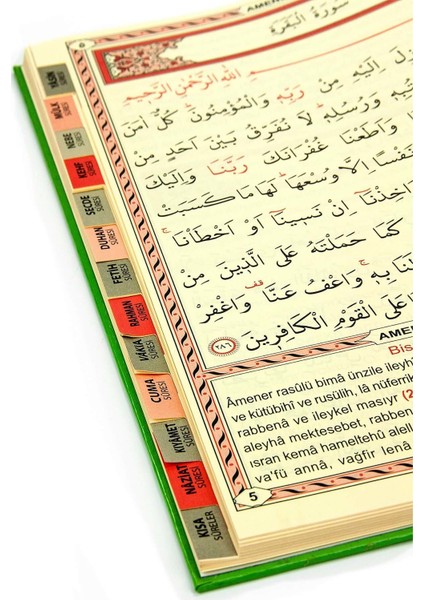 AMENE
سُورَةُ الْبَقَرَةِ
مِ اللهِ الرَّحْمٰنِ الرَّحِيمِ
زِلَ اِلَيْهِ مِنْ رَبِّهِ وَالْمُؤْمِنُونَ كُلٌّ اٰمَنَ
وَرُسُلِهِ لَا نُفَرِّقُ بَيْنَ اَحَدٍ مِنْ
وَاَطَعْنَا غُفْرَانَكَ رَبَّنَا وَاِلَيْكَ
نَفْسًا اِلَّا وُسْعَهَا لَهَا مَا كَسَبَتْ
اِنْ نَسِينَا اَوْ اَخْطَأْنَا
كَمَا حَمَلْتَهُ عَلَى الَّذِينَ مِنْ
بِهِ وَاعْفُ عَنَّا وَاغْفِرْ
عَلَى الْقَوْمِ الْكَافِرِينَ ﴿٢٨٦﴾
AMENE
Bis
Âmener rasûlü bimâ ünzile ileyh
ve kütübihî ve rusülih, lâ nüferrik
rabbenâ ve ileykel masıyr (2
aleyhâ mektesebet, rabben
ısran kemâ hameltehû alell
va'fü annâ, vağfir lenâ
5
YASİN SÛRESİ
MÜLK SÛRESİ
NEBE SÛRESİ
KEHF SÛRESİ
SECDE SÛRESİ
DUHAN SÛRESİ
FETİH SÛRESİ
RAHMAN SÛRESİ
VÂKIA SÛRESİ
CUMA SÛRESİ
KIYÂMET SÛRESİ
NÂZİAT SÛRESİ
KISA SÛRELER